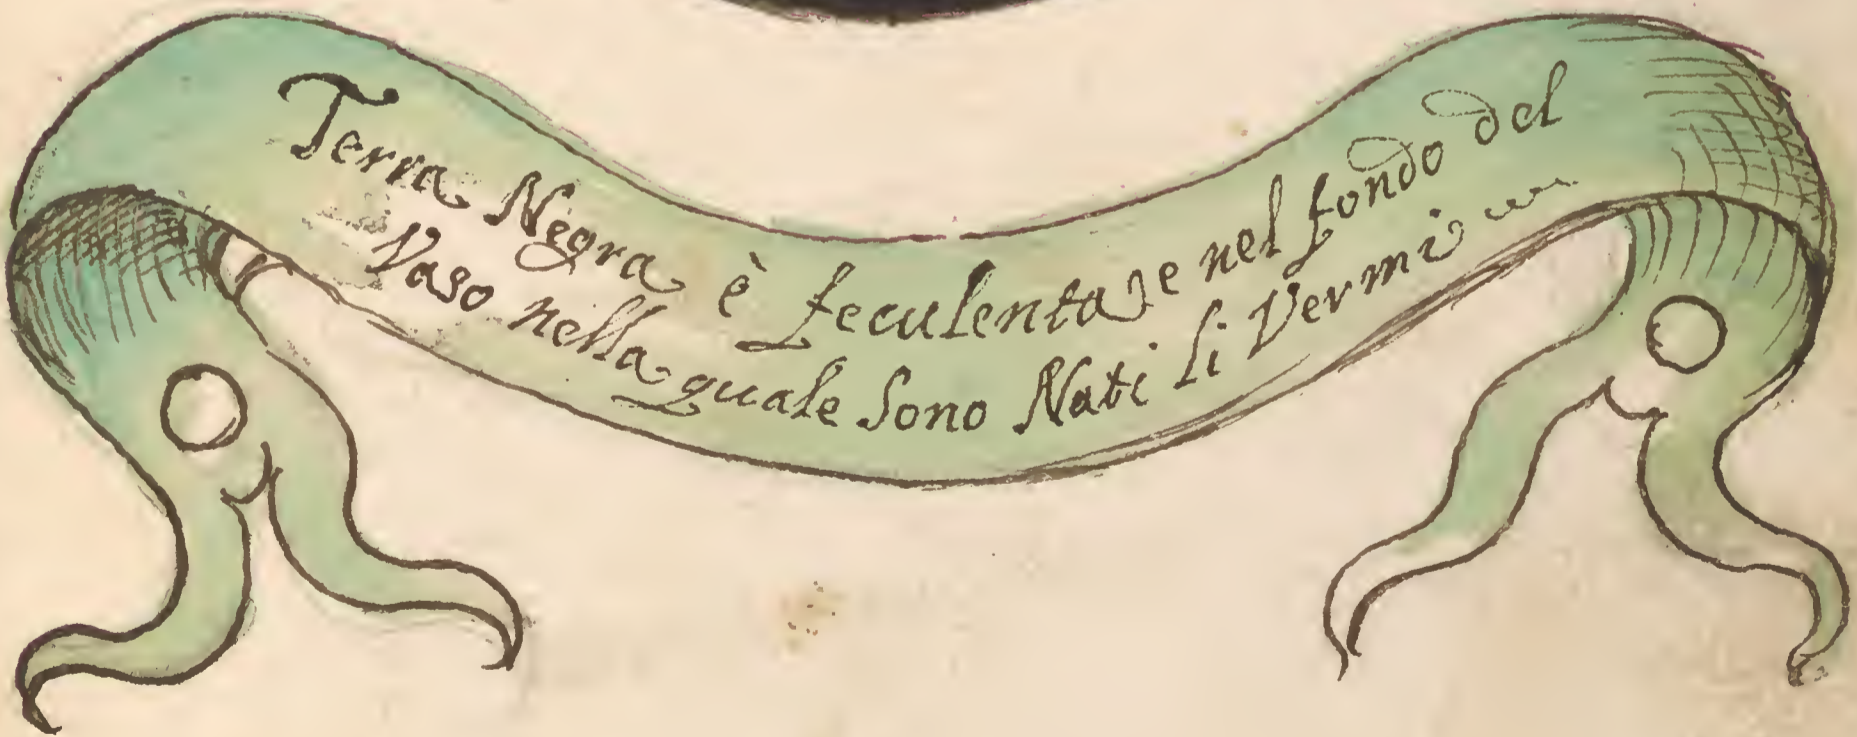 Terra Negra è feculenta, e nel fondo del
Vaso nella quale sono Nati li Vermi